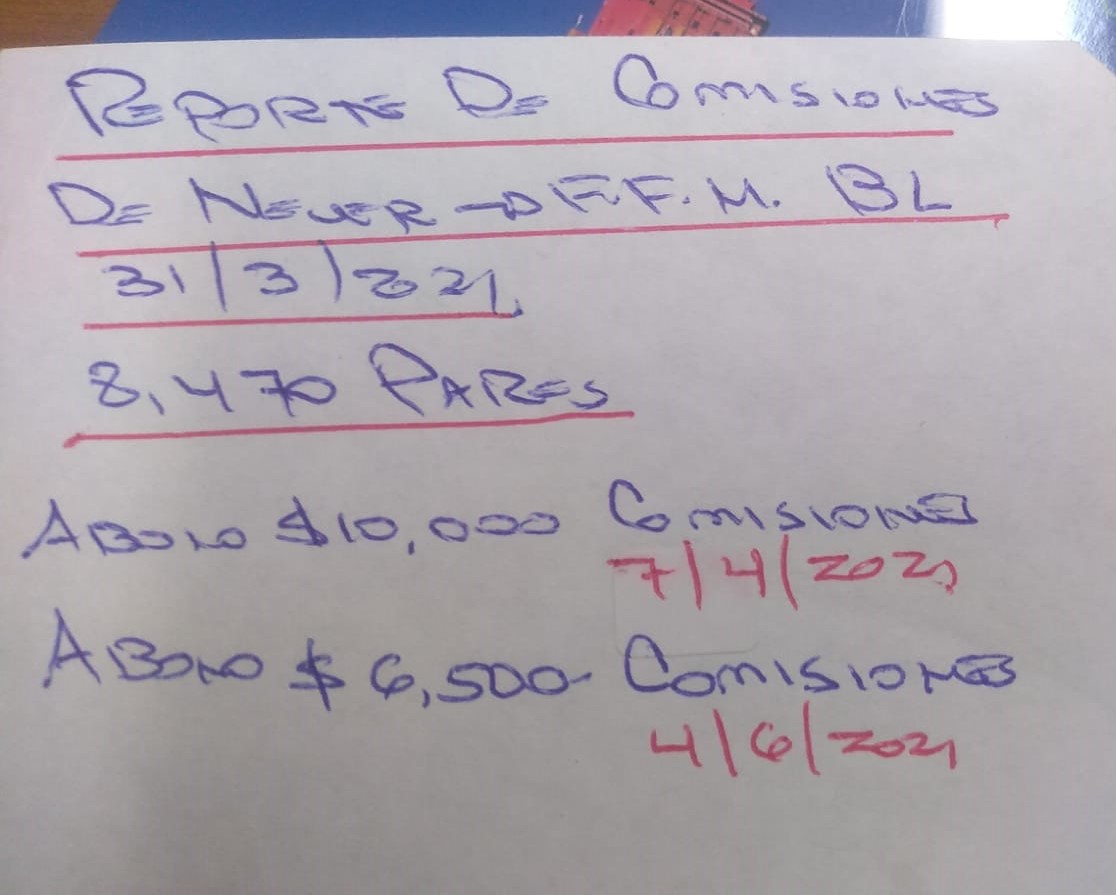 REPORTE DE COMISIONES
DE NEVER → F.F.M. BL
31/3/2021
8,470 PARES
ABONO $10,000 COMISIONES
7/4/2021
ABONO $6,500- COMISIONES
4/6/2021